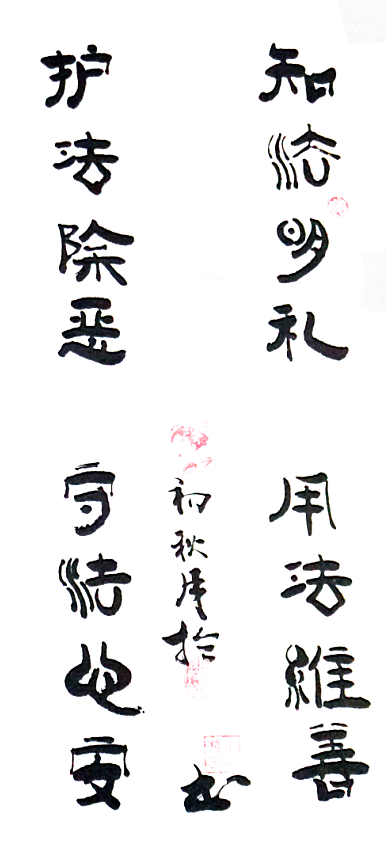 知法明礼
用法维善
护法除恶
守法心安
初秋月
书